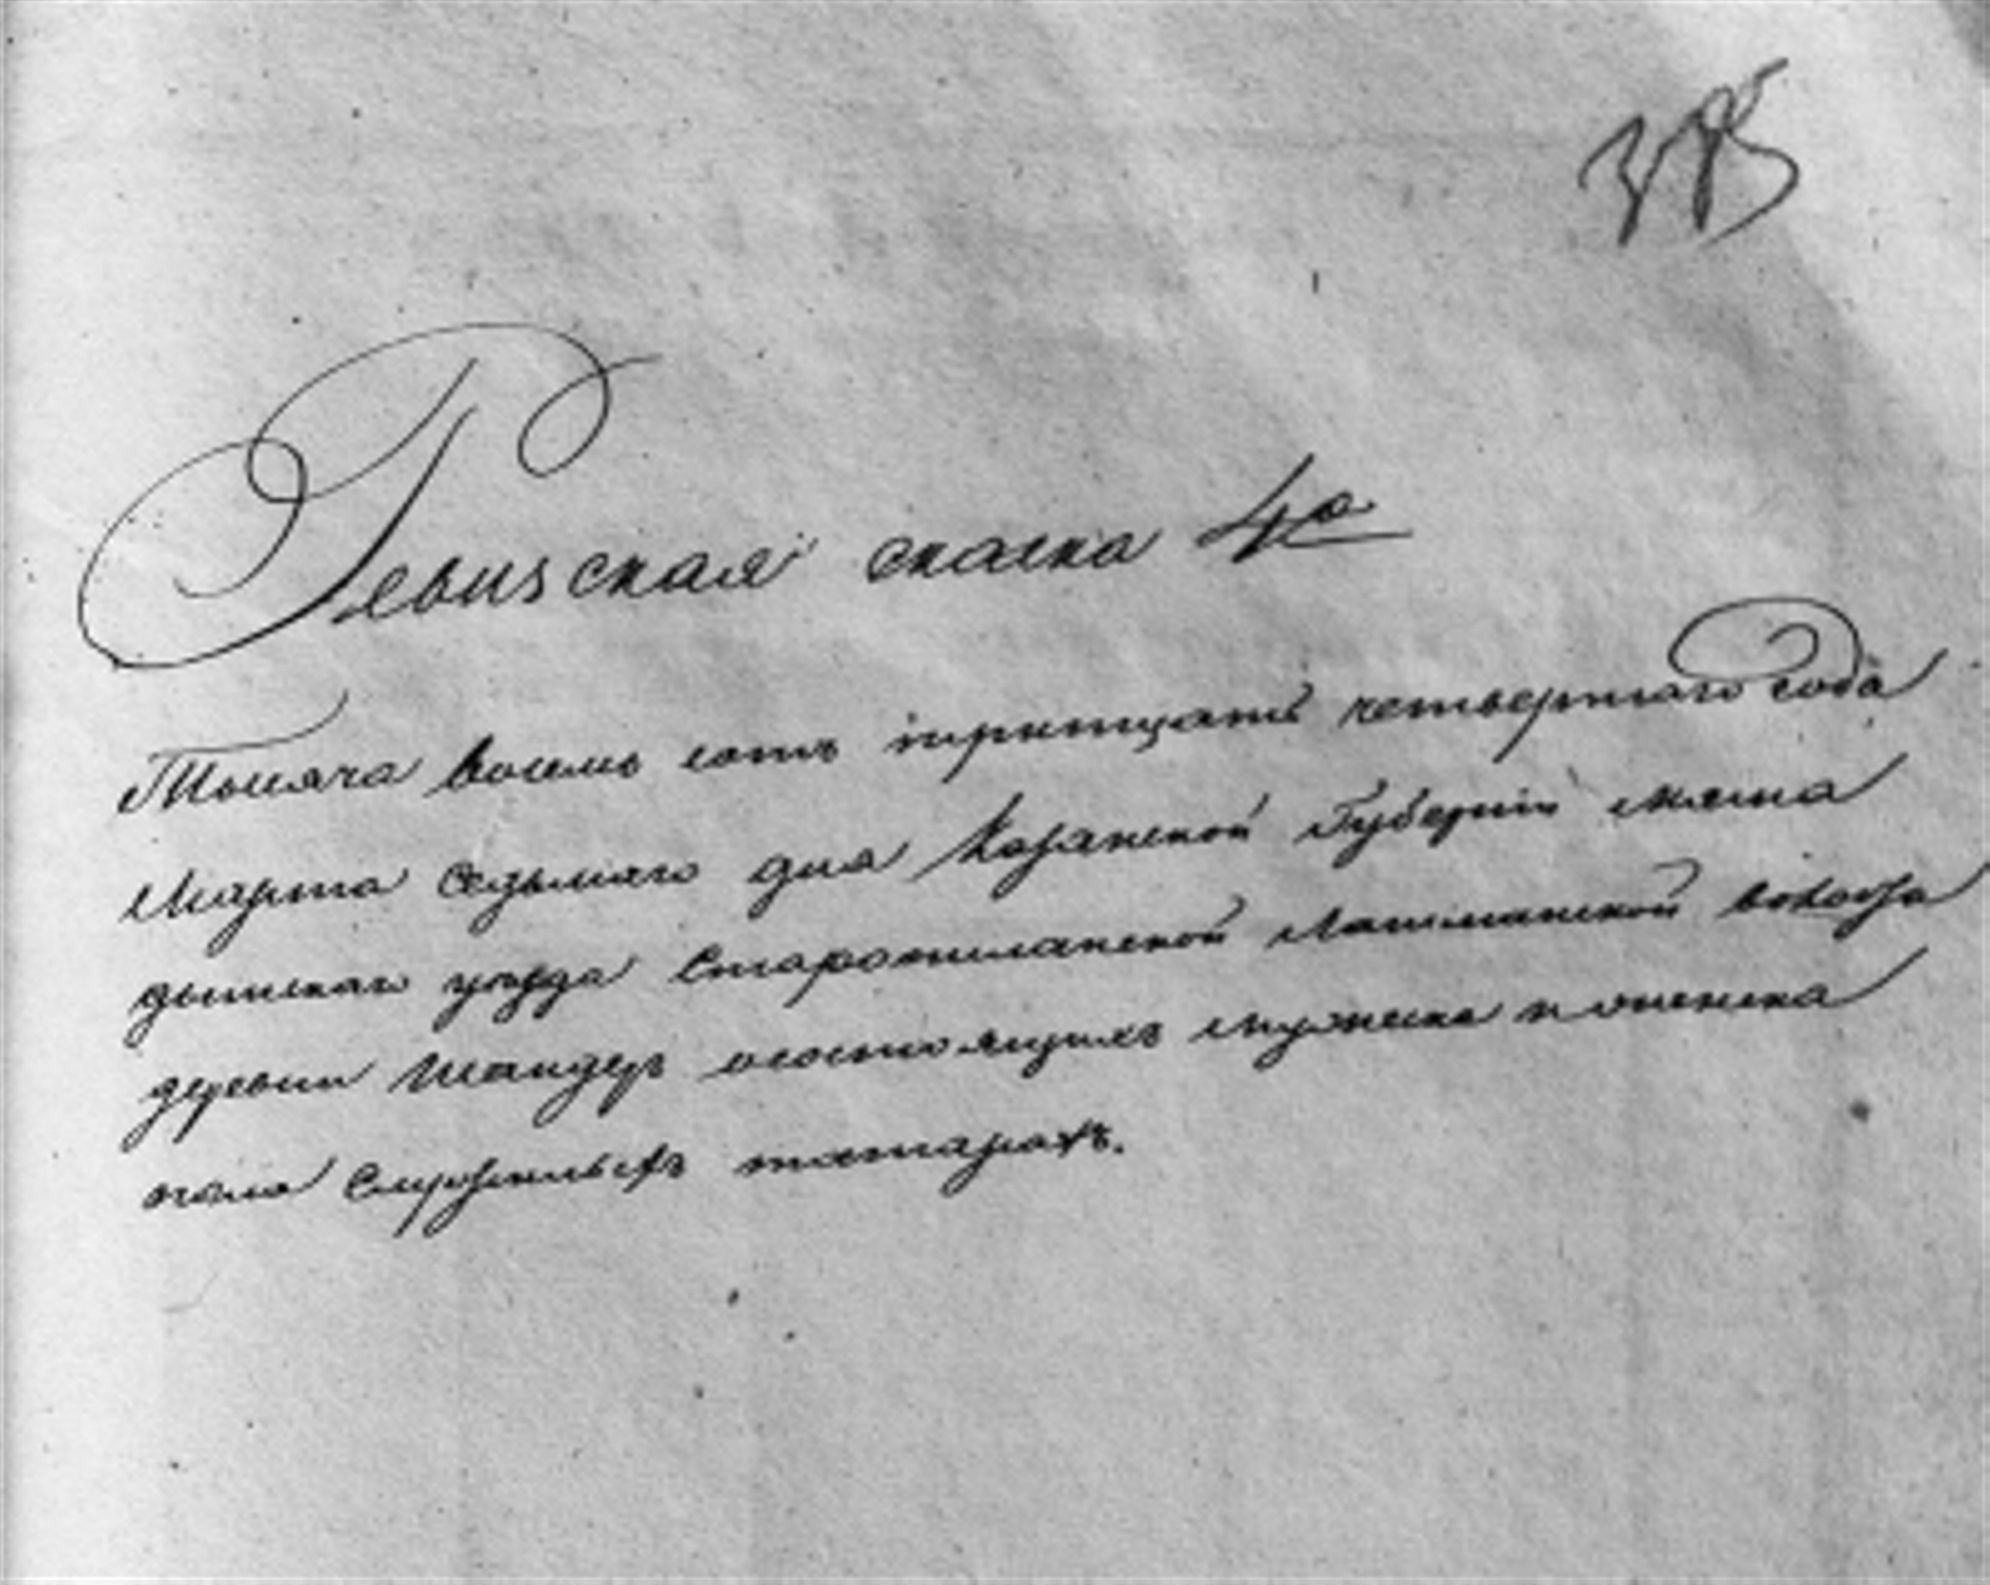 385
Ревизская скаска 4я
Тысяча восемь сотъ тритцать четвертаго года
Марта седьмаго дня Казанской Губернiи Мама
дышскаго уѣзда Старокиланской Лашманской волости
деревни Шандеръ осостоящихъ мужеска и женска
пола Служилыхъ татарахъ.